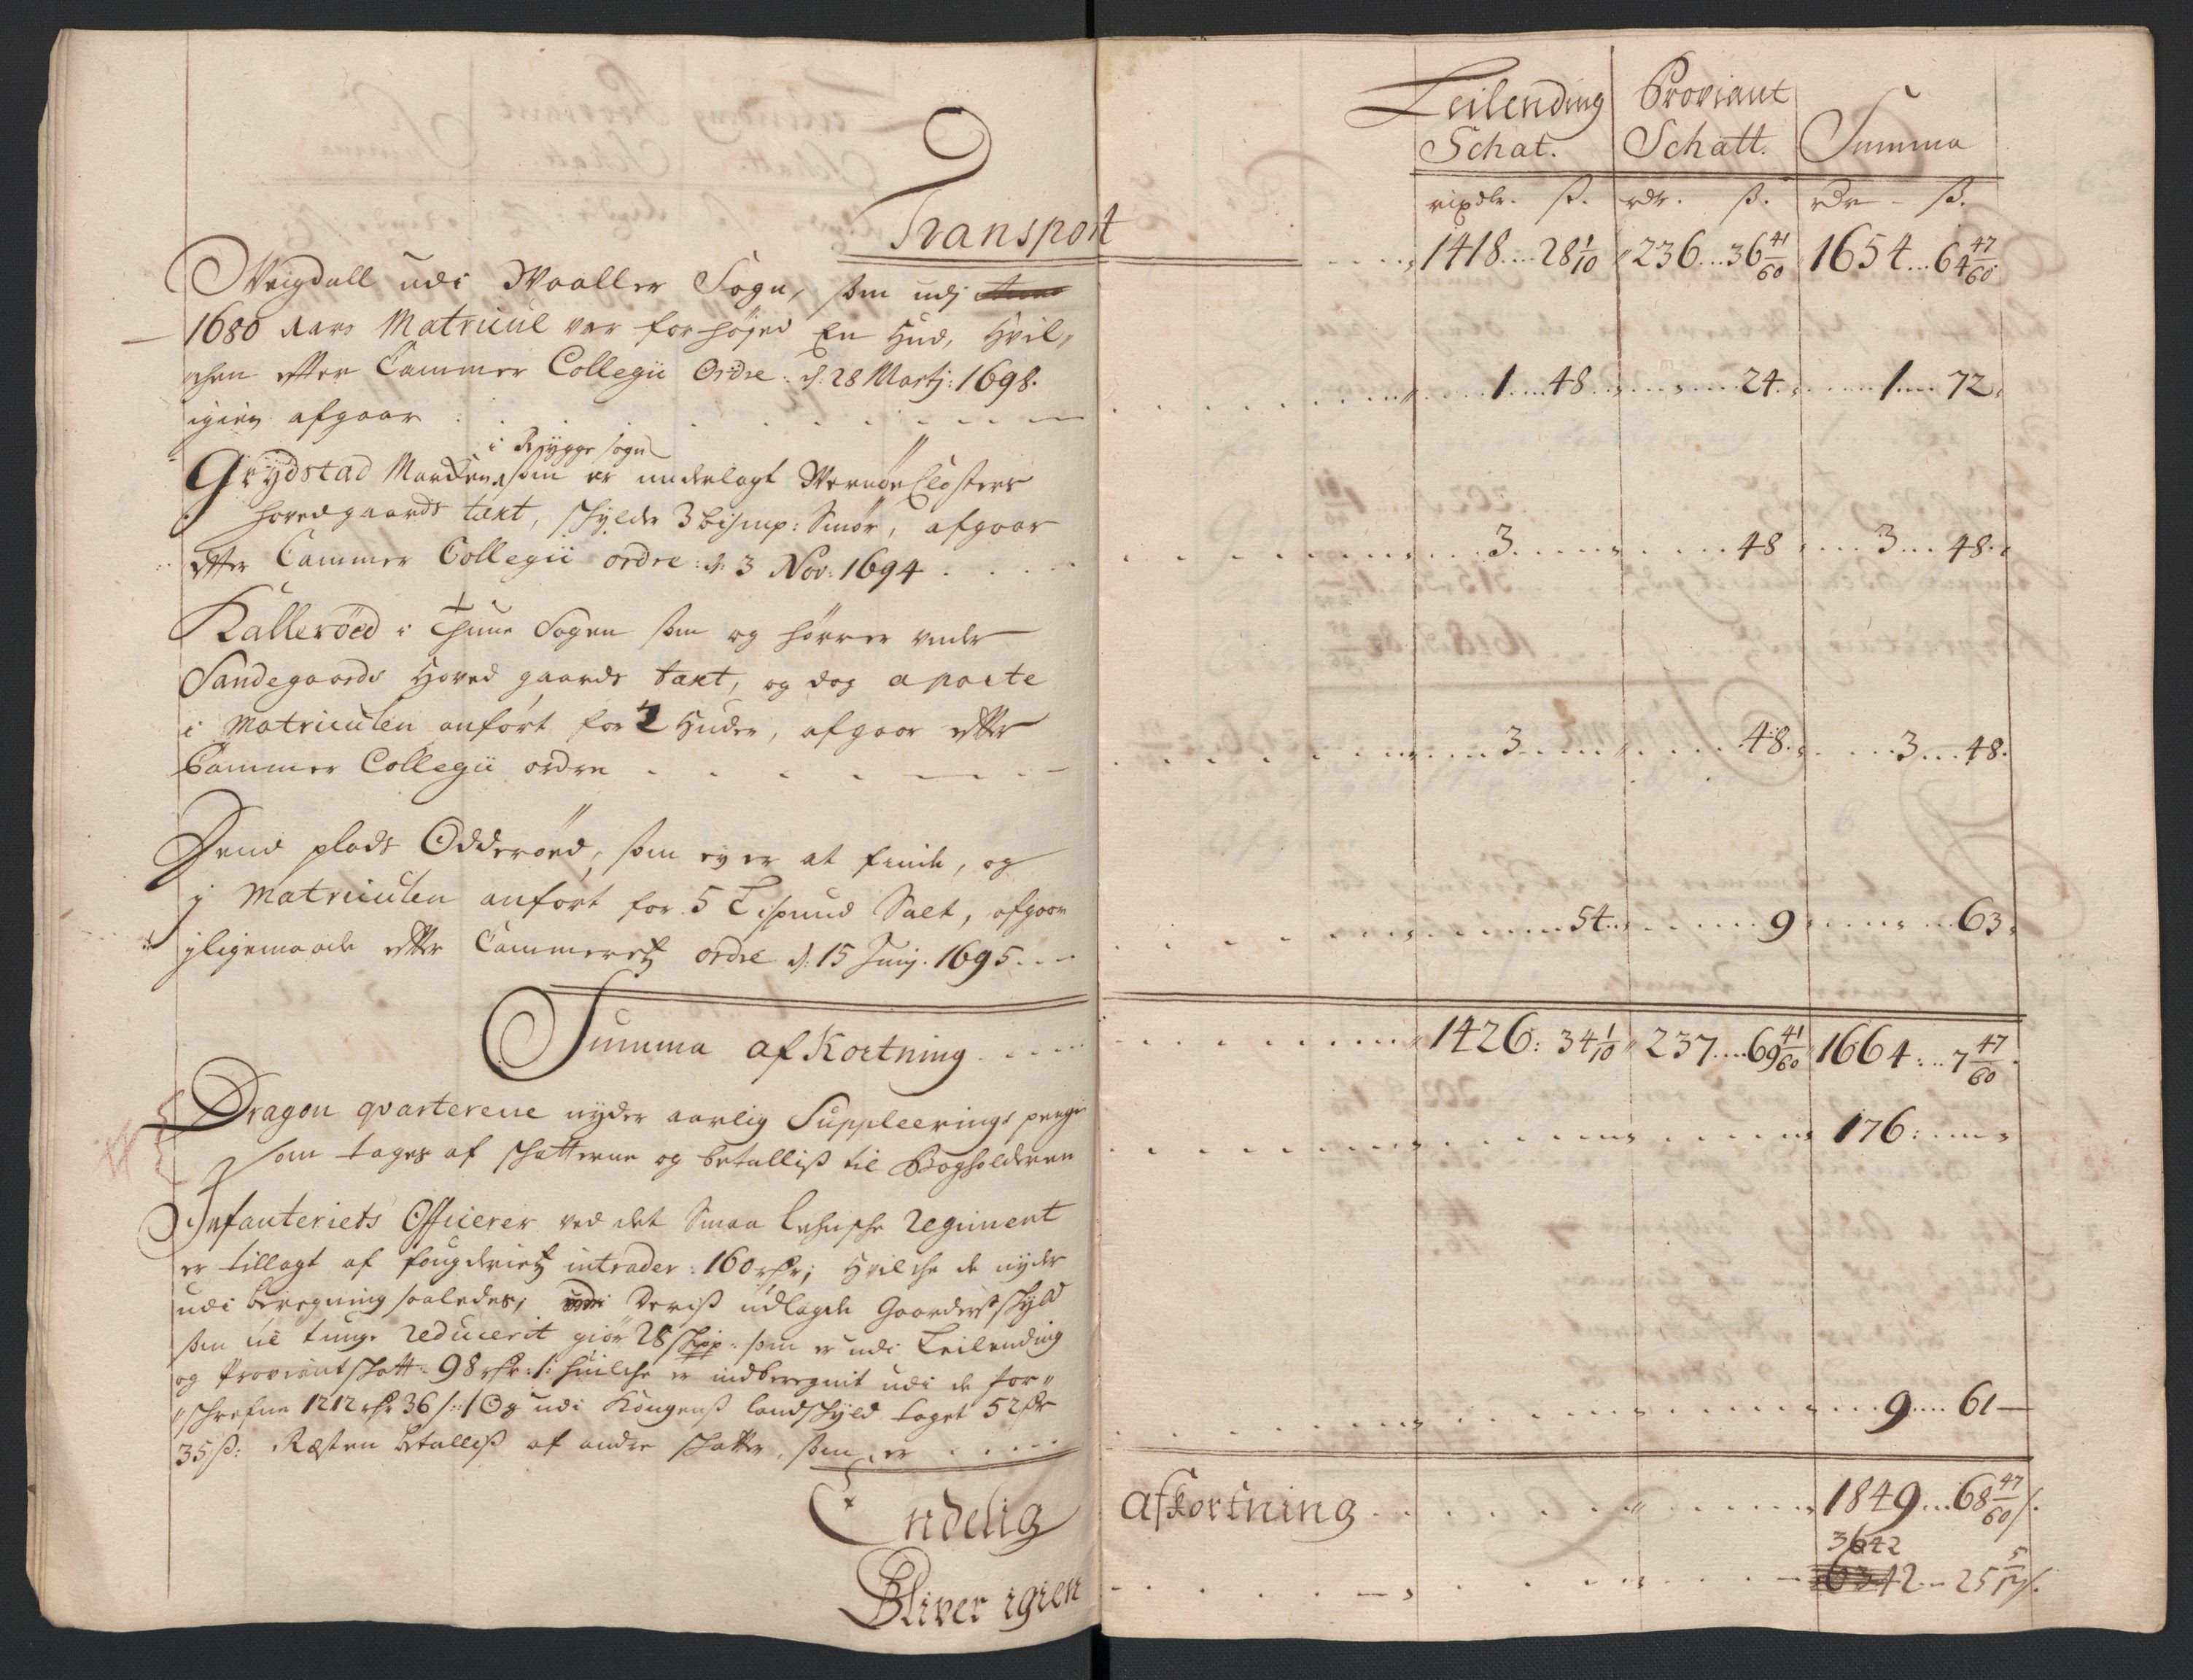 Leilending Proviant
Schat. Schatt. Summa
rixdr. ß. rdr. ß. rdr ß.
Transport 1418 28 1/10 236 36 41/60 1654 64 47/60
Weigdall udi Waaller Sogn, som udj
1680 Aars Matricul var forhøjed En Hud, Hvil,
chen efter Cammer Collegii Ordre d: 28 Martj: 1698.
igien afgaar 1 48 24 1 72
i Rygge sogn
Grydstad Marcken som er underlagt Wernøe Closters
hovedgaards taxt, schylder 3 bismp: Smør, afgaar
efter Cammer Collegii ordre: d: 3 Nov: 1694 3 48 3 48
Kalleröed i Thune Sogen som og hörrer under
Sandegaards Hoved gaards taxt, og dog aparte
i Matriculen anført for 2 Huder, afgaar efter
Cammer Collegii ordre 3 48 3 48
Dend plads Odderöed, som ej er at finde, og
j Matriculen anført for 5 Lispund Salt, afgaar
jligemaade efter Cammeretz ordre d: 15 Junj. 1695 54 9 63
Summa afKortning 1426: 34 1/10 237 69 41/60 1664: 7 47/60
Dragon qvarterene nyder aarlig Suppleerings penge
som tages af schatterne og betalliß til Bogholderen 176:
Infanteriets Officerer ved det Smaa Lehnsche Regiment
er tillagt af fougderietz intrader: 160 rdr; Hvilche de nyder
udi beregning saaledes, Deriß udlagde Gaarders schyld
som til tunge reducerit giør 28 schpp: som er udi Leilending
og Proviantschatt: 98 rdr: /: huilche er indberegnit udi de for„
„schrefne 1212 rdr 36 /: :/ Og udi Kongenß landschyld taget 52 dr
35 ß: Resten betalliß af andre schatter, som er 9 61
Endelig afkortning 1849 68 47/60
3642
Bliver igien 25 5/12